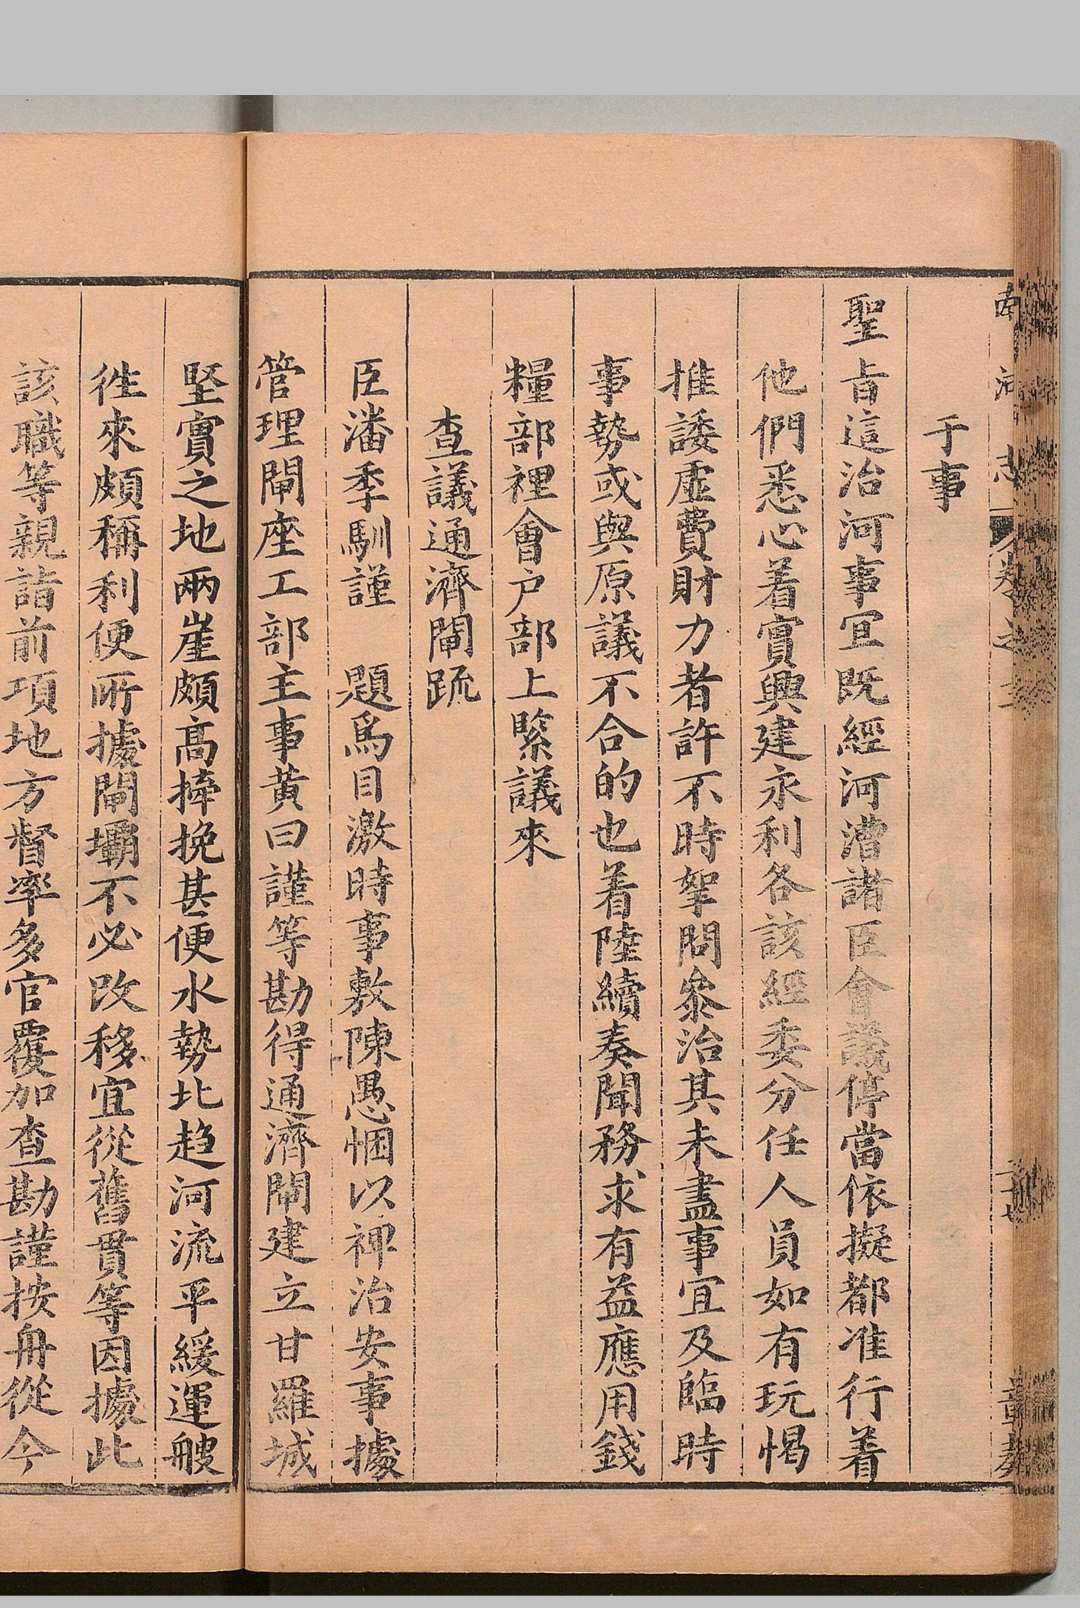 于事
聖旨這治河事宜既經河漕諸臣會議停當依擬都准行着
他們悉心着實興建永利各該經委分任人員如有玩愒
推諉虛費財力者許不時挐問叅治其未盡事宜及臨時
事勢或與原議不合的也着陸續奏聞務求有益應用錢
糧部裡會户部上緊議來
查議通濟閘疏
臣潘季馴謹題爲目激時事敷陳愚悃以裨治安事據
管理閘座工部主事黃曰謹等勘得通濟閘建立甘羅城
堅實之地兩崖頗高捧挽甚便水勢北趋河流平緩運艘
徃來頗稱利便所據閘壩不必改移宜從舊貫等因據此
該職等親詣前項地方督率多官覆加查勘謹按舟從今